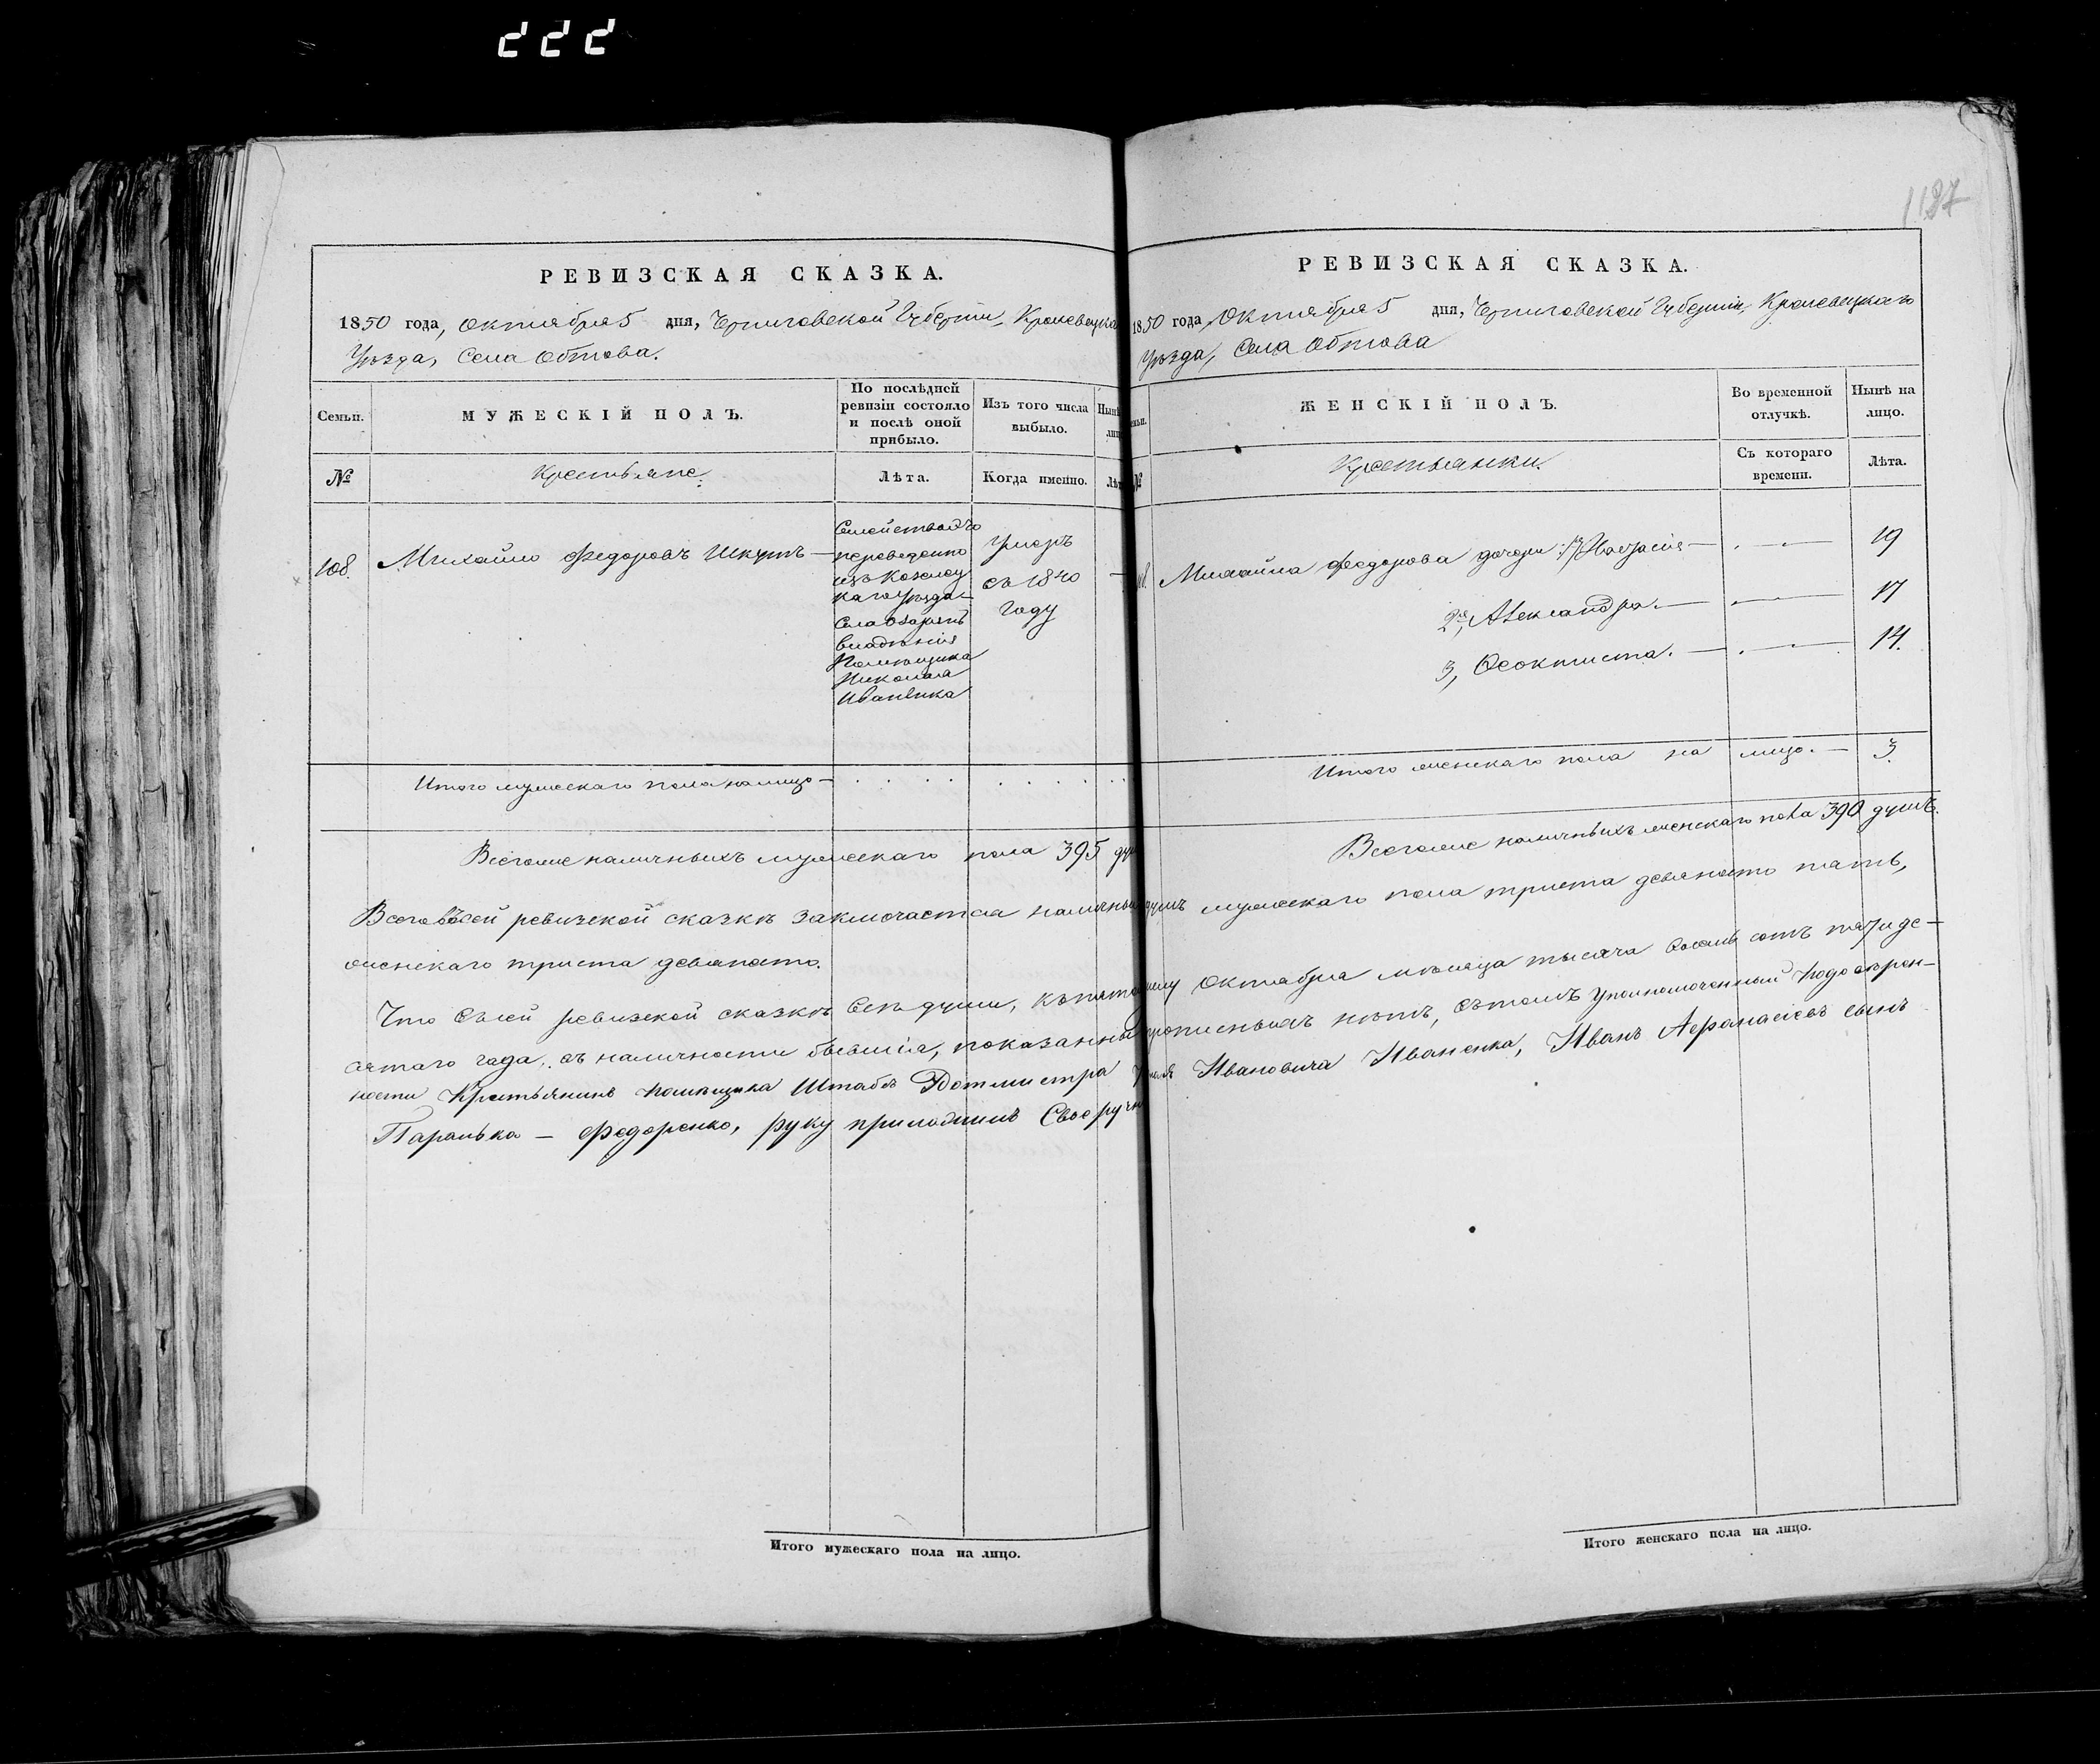 1127
РЕВИЗСКАЯ СКАЗКА.
1850 года, Октября 5 дня, Черниговской Губернии, Кролевецка
Уѣзда, Села Обтова.
Семьи.
МУЖЕСКІЙ ПОЛЪ.
По послѣдней ревизіи состояло и послѣ оной прибыло.
Изъ того числа выбыло.
№
Крестьяне.
Лѣта.
Когда именно.
108.
Михайло Федоровъ Шкутъ
переведенно
изъ
каго Уѣзда
Села
владѣнія
Помѣщика
Николая
Иваненка
Умеръ
въ 1840
году
Итого мужескаго пола налицо
Всегоже наличныхъ мужескаго пола 395
РЕВИЗСКАЯ СКАЗКА.
1850 года, Октября 5 дня, Черниговской Губерніи, Кролевецкаго
Уѣзда, Села Обтова
ЖЕНСКІЙ ПОЛЪ.
Во временной отлучкѣ.
Нынѣ на лицо.
№
Крестьянки.
Съ котораго времени.
Лѣта.
Михайла Федорова дочери: 1, Настасія 19
2я, Александра. 17
3, Феоктиста. 14.
Итого женскаго пола на лицо. 3.
Всегоже наличныхъ женскаго пола 390 душъ.
Всего въ сей ревизской сказкѣ заключается наличныхъ душъ мужескаго пола триста девяносто пять,
женскаго триста девяносто.
Что въ сей ревизской сказкѣ всѣ души, къ пятому Октября мѣсяца тысяча восемь сотъ пятиде-
сятаго года, въ наличности бывшія, показанны прописныхъ нѣтъ, въ томъ уполномоченный
ности Крестьянинъ помѣщика Штабъ Ротмистра Ивановича Иваненка, Иванъ Афанасіевъ сынъ
Паранька — Федоренко, руку приложилъ
Итого мужескаго пола на лицо.
Итого женскаго пола на лицо.